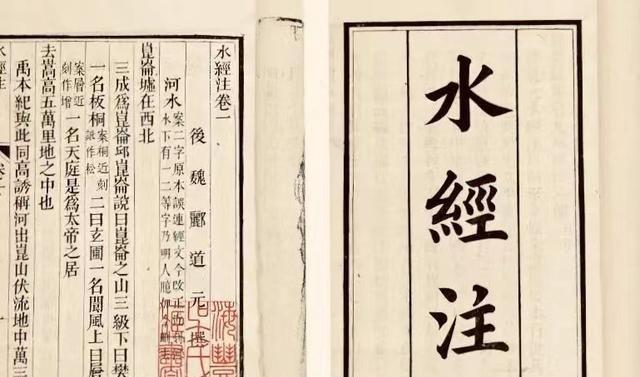 水經注
水經注卷一
後魏酈道元撰
河水案二字原本誤連經文今改正
水下有一二等字乃明人臆加今刪
崑崙墟在西北
三成爲崑崙邱崑崙說曰崑崙之山三級下曰樊
一名板桐案桐近刻訛作松二曰玄圃一名閬風上曰層
案層近刻作增一名天庭是爲太帝之居
去嵩高五萬里地之中也
禹本紀與此同高誘稱河出崑山伏流地中萬三
水經注